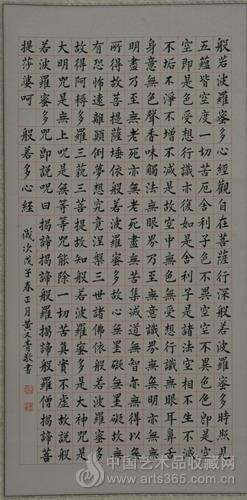 般若波羅蜜多心經觀自在菩薩行深般若波羅蜜多時照見
五蘊皆空度一切苦厄舍利子色不異空空不異色色即是空
空即是色受想行識亦復如是舍利子是諸法空相不生不滅
不垢不淨不增不減是故空中無色無受想行識無眼耳鼻舌
身意無色聲香味觸法無眼界乃至無意識界無無明亦無無
明盡乃至無老死亦無老死盡無苦集滅道無智亦無得以無
所得故菩提薩埵依般若波羅蜜多故心無罣礙無罣礙故無
有恐怖遠離顛倒夢想究竟涅槃三世諸佛依般若波羅蜜多
故得阿耨多羅三藐三菩提故知般若波羅蜜多是大神咒是
大明咒是無上咒是無等等咒能除一切苦真實不虛故說般
若波羅蜜多咒即說咒曰揭諦揭諦般羅揭諦般羅僧揭諦菩
提莎婆呵 般若多心經 歲次戊子春正月黃 敬書
中国艺术品收藏网